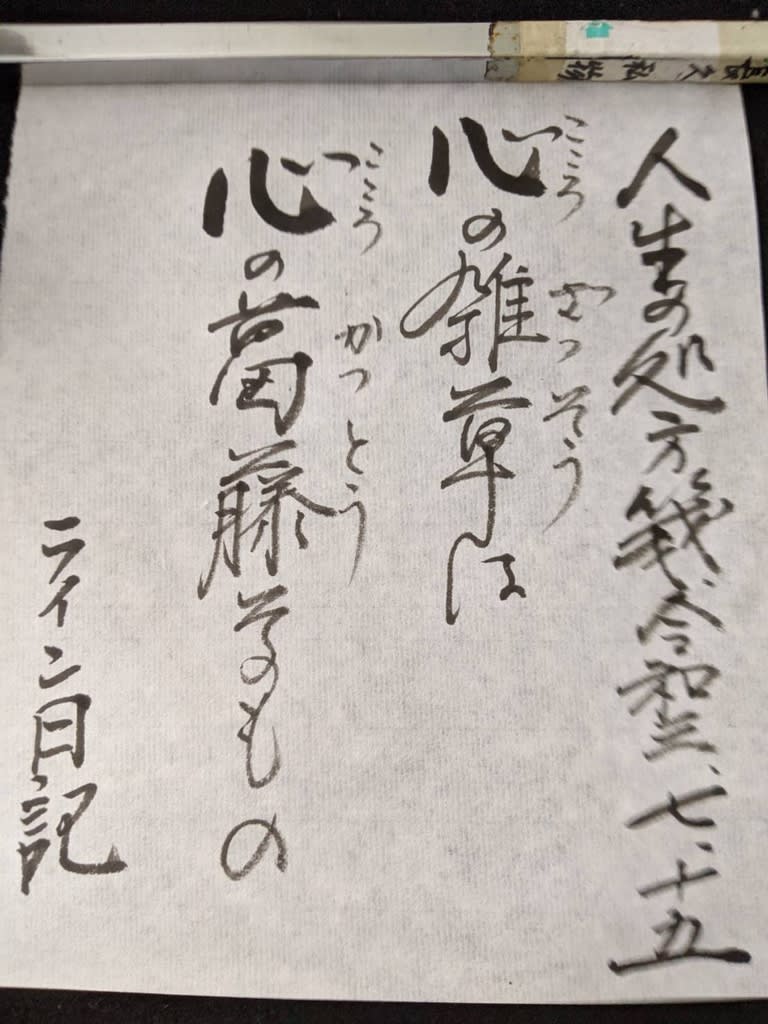 人生の処方箋、令和三、七、十五
こころ ざっそう
心の雑草は
こころ かっとう
心の葛藤そのもの
ライン日記